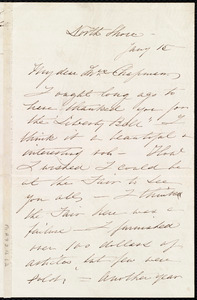 North Shore
Jany 15
My dear Mrs Chapman,
I ought long ago to
have thanked you for
the Liberty Bell - I
think it a beautiful &
interesting vol - How
I wished I could be
at the Fair to see
you all - I think
the Fair here was a
failure - I furnished
over 100 dollars of
articles but few were
sold; - Another year